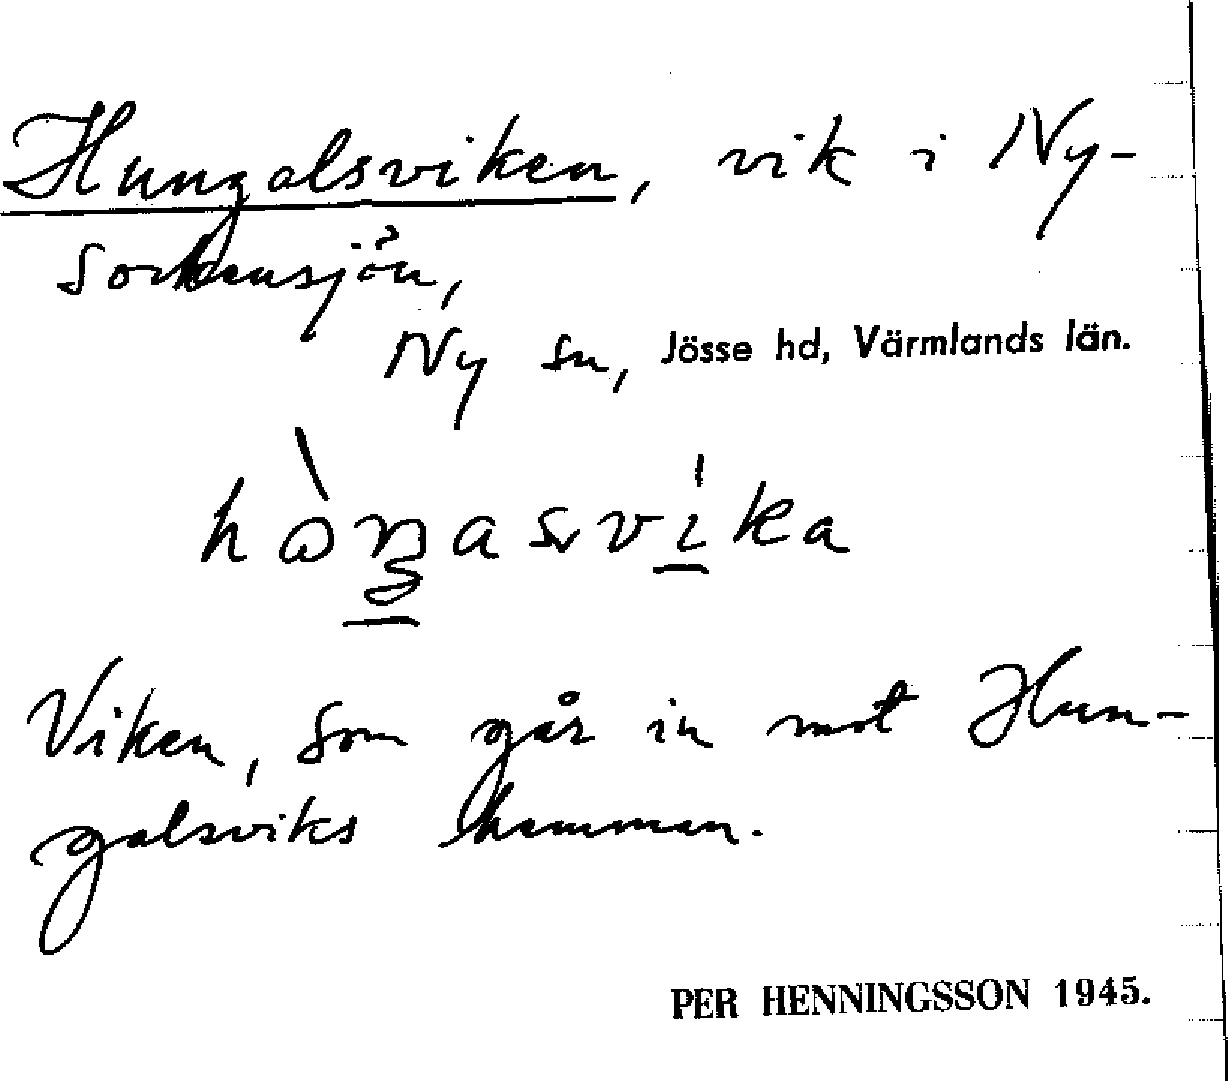 Hungalsviken, vik i Ny-
sockensjön,
Ny sn, Jösse hd, Värmlands län.
Viken, som går in mot Hun-
galsviks hemman.
PER HENNINGSSON 1945.